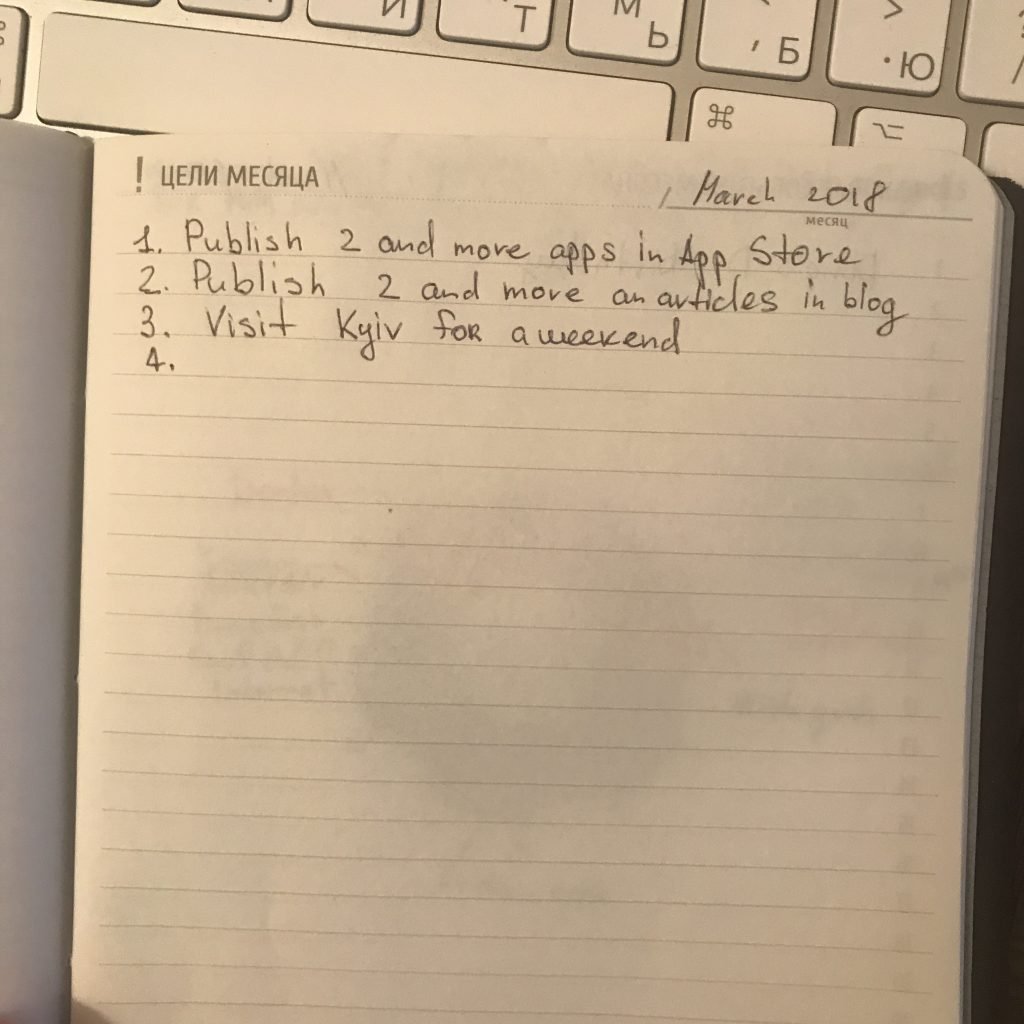 И Т М Ь , Б > . Ю /
⌘ ⌥
! ЦЕЛИ МЕСЯЦА
March 2018
месяц
1. Publish 2 and more apps in App Store
2. Publish 2 and more an articles in blog
3. Visit Kyiv for a weekend
4.